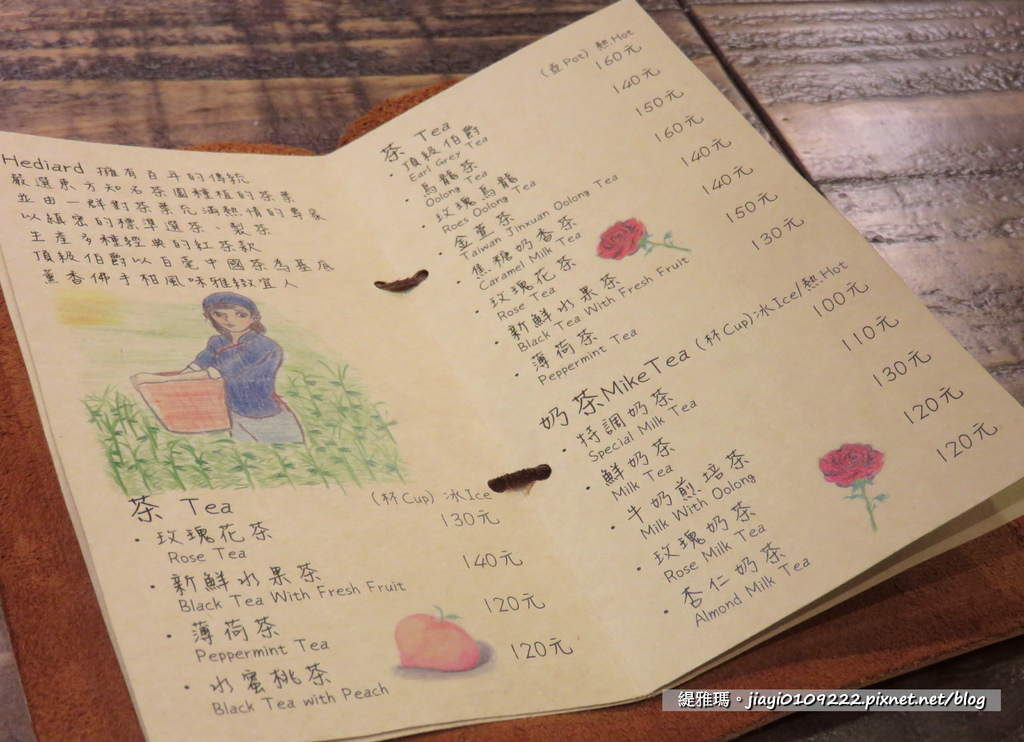 Hediard 擁有百年的傳統
嚴選東方知名茶園種植的茶葉
並由一群對茶葉充滿熱情的專家
以縝密的標準選茶、製茶
生產多種經典的紅茶款
頂級伯爵以白毫中國茶為基底
薰香佛手柑風味雅緻宜人
茶 Tea (杯Cup) 冰Ice
· 玫瑰花茶 130元
Rose Tea
· 新鮮水果茶 140元
Black Tea With Fresh Fruit
· 薄荷茶 120元
Peppermint Tea
· 水蜜桃茶 120元
Black Tea with Peach
茶 Tea (壺Pot) 熱Hot
· 頂級伯爵 160元
Earl Grey Tea
· 烏龍茶 140元
Oolong Tea
· 玫瑰烏龍 150元
Roes Oolong Tea
· 金萱茶 160元
Taiwan Jinxuan Oolong Tea
· 焦糖奶香茶 140元
Caramel Milk Tea
· 玫瑰花茶 140元
Rose Tea
· 新鮮水果茶 150元
Black Tea With Fresh Fruit
· 薄荷茶 130元
Peppermint Tea
奶茶MikeTea (杯Cup)冰Ice/熱Hot
· 特調奶茶 100元
Special Milk Tea
· 鮮奶茶 110元
Milk Tea
· 牛奶煎培茶 130元
Milk With Oolong
· 玫瑰奶茶 120元
Rose Milk Tea
· 杏仁奶茶 120元
Almond Milk Tea
緹雅瑪。jiayi0109222.pixnet.net/blog